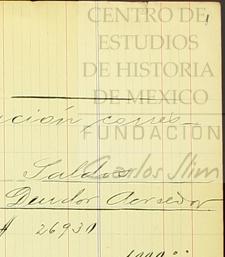 CENTRO DE
ESTUDIOS
DE HISTORIA
DE MEXICO
FUNDACIÓN
Carlos Slim
Saldos
Deudor Acreedor
26930